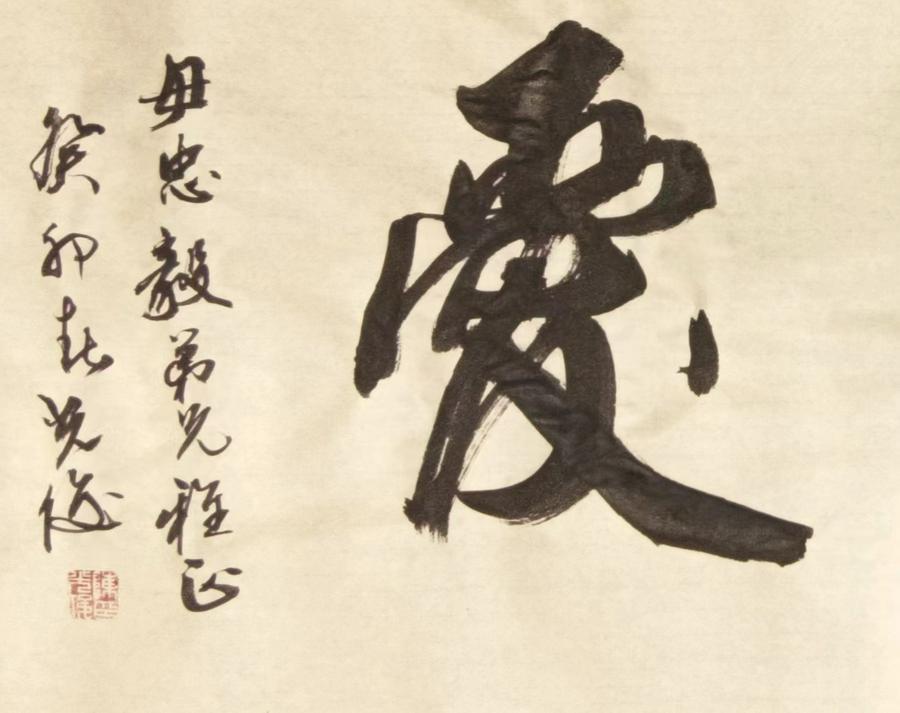 愛
毋忠毅弟兄雅正
癸卯春